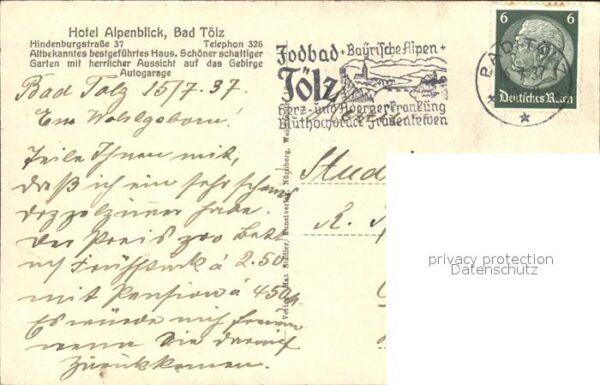 Hotel Alpenblick, Bad Tölz
Hindenburgstraße 37 Telephon 326
Altbekanntes bestgeführtes Haus. Schöner schattiger
Garten mit herrlicher Aussicht auf das Gebirge
Autogarage
Bad Tölz 15/7. 37.
Euer Wohlgeboren!
Teile Ihnen mit,
daß ich ein sehr schönes
Doppelzimmer habe.
Der Preis pro Bett
mit Frühstück á 2.50
mit Pension á 4.50
Es würde mich freuen
wenn Sie darauf
zurückkommen.
Jodbad + Bayrische Alpen +
Tölz
Herz- und Adernerkrankung
Blüthochdruck Frauenleiden
6 6
Deutsches Reich
BAD TÖLZ
Verlag Max Stadler, Kunstverlag, Nürnberg
Stud
privacy protection
Datenschutz